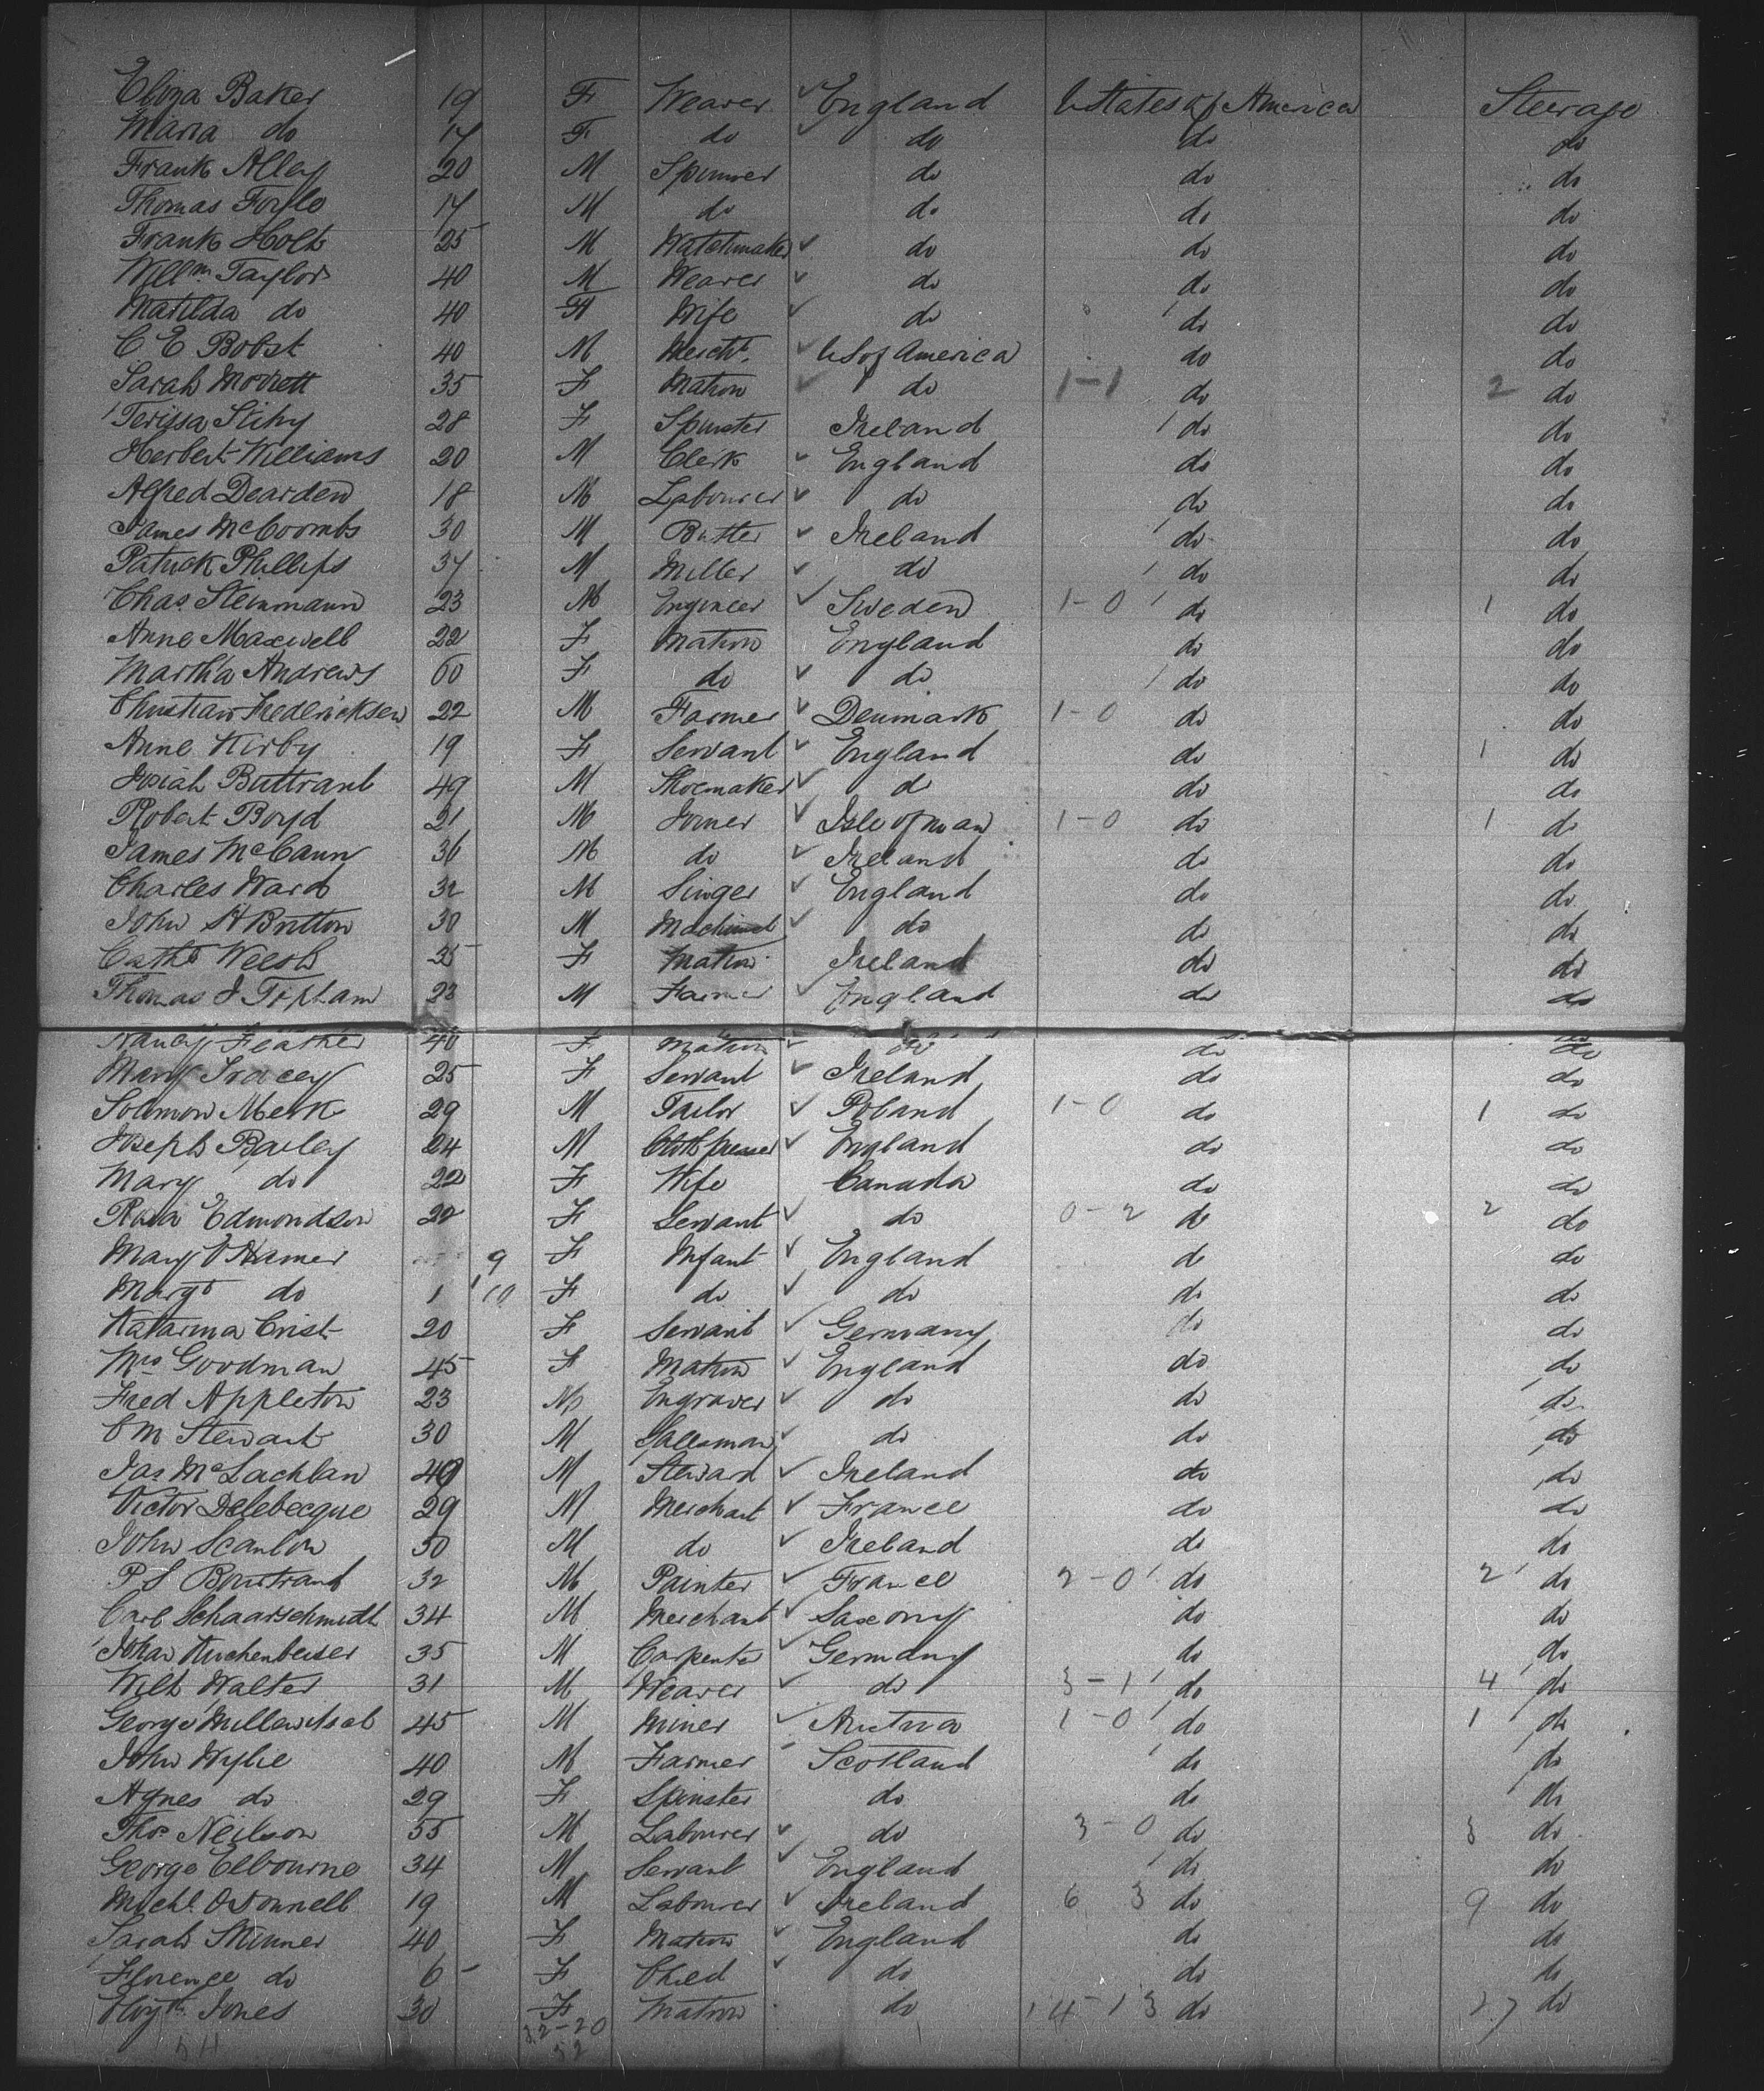 Eliza Baker 19 F Weaver England U States of America Steerage
Maria do 17 F do do do do
Frank Alley 20 M Spinner do do do
Thomas 17 M do do do do
Frank Holt 25 M Watchmaker do do do
Willm Taylor 40 M Weaver do do do
Matilda do 40 F Wife do do do
C E Bobst 40 M Mercht. U S of America do do
Sarah 35 F Matron do 1-1 do 2 do
Terissa 28 F Spinster Ireland do do
Herbert Williams 20 M Clerk England do do
Alfred Dearden 18 M Labourer do do do
James McCoombs 30 M Ireland do do
Patrick Phillips 37 M Miller do do do
Chas. Steinmann 23 M Engineer Sweden 1-0 do 1 do
Anne Maxwell 22 F Matron England do do
Martha Andrews 60 F do do do do
Christian Fredericksen 22 M Farmer Denmark 1-0 do do
Anne Kirby 19 F Servant England do 1 do
Josiah Buttrant 49 M Shoemaker d do do
Robert Boyd 21 M Joiner Isle of man 1-0 do 1 do
James McCann 36 M do Ireland do do
Charles Ward 32 M Singer England do do
John H Britton 30 M Machinist do do do
Cathe 35 F Matron Ireland do do
Thomas J Topham 23 M Farmer England do do
Nancy Feather 40 F Matron do do do
Mary Tracey 25 F Servant Ireland do do
Solomon Merk 29 M Tailor Poland 1-0 do 1 do
Joseph Bailey 24 M Cloth presser England do do
Mary do 22 F Wife Canada do do
Rosa Edmondson 22 F Servant do 0-2 do 2 do
Mary Hamer 9 F Infant England do do
Margt do 1 10 F do do do do
Katarina Crist 20 F Servant Germany do do
Mrs Goodman 45 F Matron England do do
Fred Appleton 23 M Engraver do do do
C M Stewart 30 M Salesman do do do
Jas McLachlan 40 M Steward Ireland do do
Victor Delebecque 29 M Merchant France do do
John Scanlon 50 M do Ireland do do
P S 32 M Painter France 2-0 do 2 do
Carl Schaarschmidt 34 M Merchant Saxony do do
Johan Kuchenbeiser 35 M Carpenter Germany do do
Wilh Walter 31 M Weaver do 3-1 do 4 do
George 45 M Miner Austria 1-0 do 1 do
John Wylie 40 M Farmer Scotland do do
Agnes do 29 F Spinster do do do
Thos Neilson 55 M Labourer do 3-0 do 3 do
George Elbourne 34 M Servant England do do
Michl. O'Donnell 19 M Labourer Ireland 6 3 do 9 do
Sarah Skinner 40 F Matron England do do
Florence do 6 F Child do do do
Jones 30 F Matron do 14-13 do 27 do
54 32-20
52